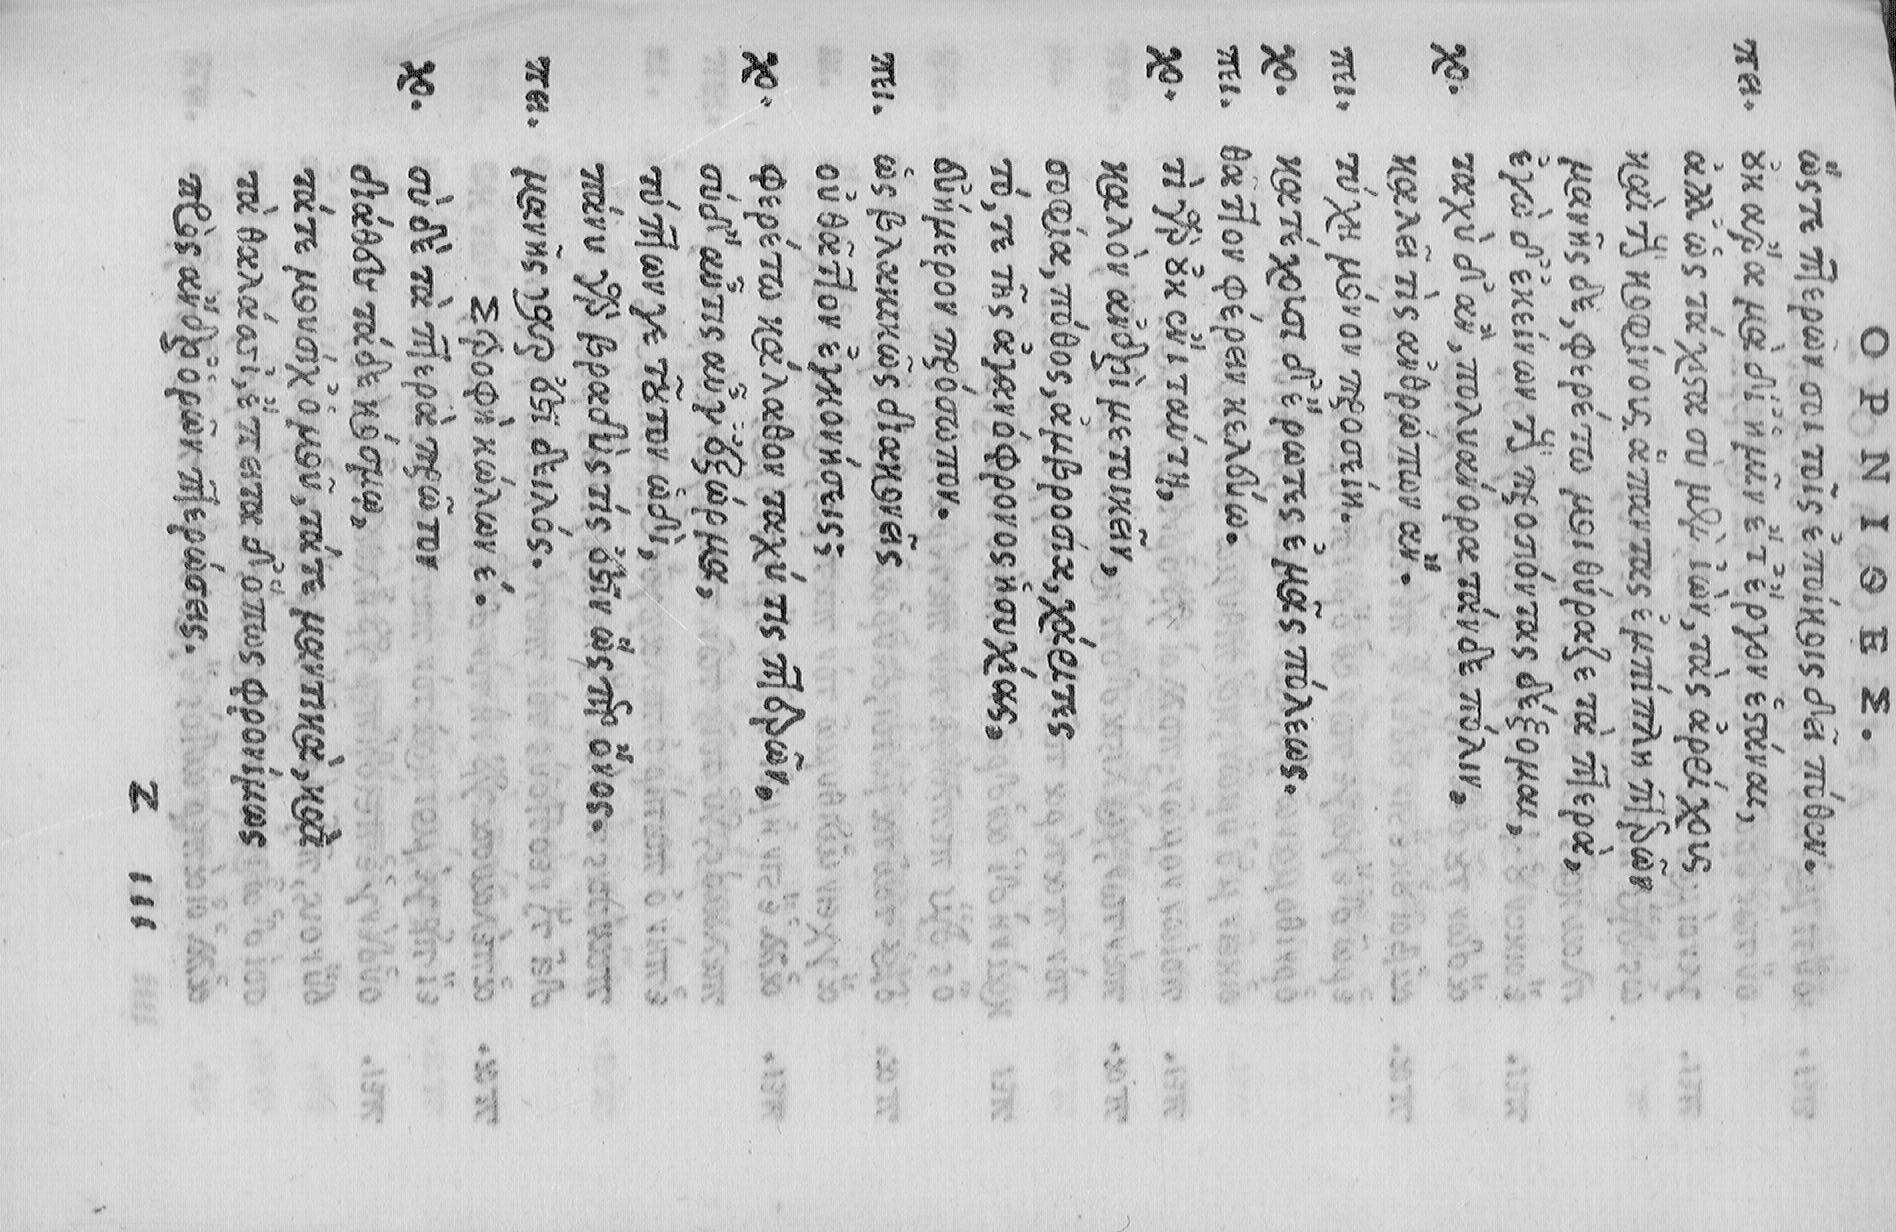 ΟΡΝΙΘΕΣ.
ὥστε πτερῶν σοι τοῖς ἐποίκοις δεῖ πόθεν.
πει. οὐκ ἄρα μὰ δί' ἡμῖν ἔτ' ἔργον ἑστάναι,
ἀλλ' ὡς τάχιστα σὺ μὲν ἰὼν, τὰς ἀρρίχους
καὶ τοὺς κοφίνους ἅπαντας ἐμπίπλη πτερῶν
μανῆς δὲ, φερέτω μοι θύραζε τὰ πτερὰ,
ἐγὼ δ' ἐκείνων τοὺς προσιόντας δέξομαι,
χο. ταχὺ δ' ἂν, πολυάνορα τάνδε πόλιν,
καλεῖ τὶς ἀνθρώπων ἄν.
πει. τύχη μόνον προσείη.
χο. κατέχουσι δ' ἔρωτες ἐμᾶς πόλεως.
πει. θᾶττον φέρειν κελεύω.
χο. τί γὰρ οὐκ ἔνι ταύτη,
καλὸν ἀνδρὶ μετοικεῖν,
σοφία, πόθος, ἀμβροσία, χάριτες
τό, τε τῆς ἀγανόφρονος ἡσυχίας,
εὐήμερον πρόσωπον.
πει. ὡς βλακικῶς διακονεῖς
οὐ θᾶττον ἐγκονήσεις;
χο. φερέτω κάλαθον ταχύ τις πτερῶν.
σὺ δ' αὖτις ἐξόρμα,
τύπτων γε τοῦτον ὡδὶ,
πάνυ γὰρ βραδύς τίς ἐστὶν ὥσπερ ὄνος.
πει. μανῆς γάρ ἐστι δειλός.
Στροφὴ κώλων έ.
χο. σὺ δὲ τὰ πτερὰ πρῶτον
διάθες τάδε κόσμῳ,
τά τε μουσίχ' ὁμοῦ, τά τε μαντικὰ, καὶ
τὰ θαλάσσι', ἔπειτα δ' ὅπως φρονίμως
πρὸς ἄνδρ' ὁρῶν πτερώσεις.
Z iii